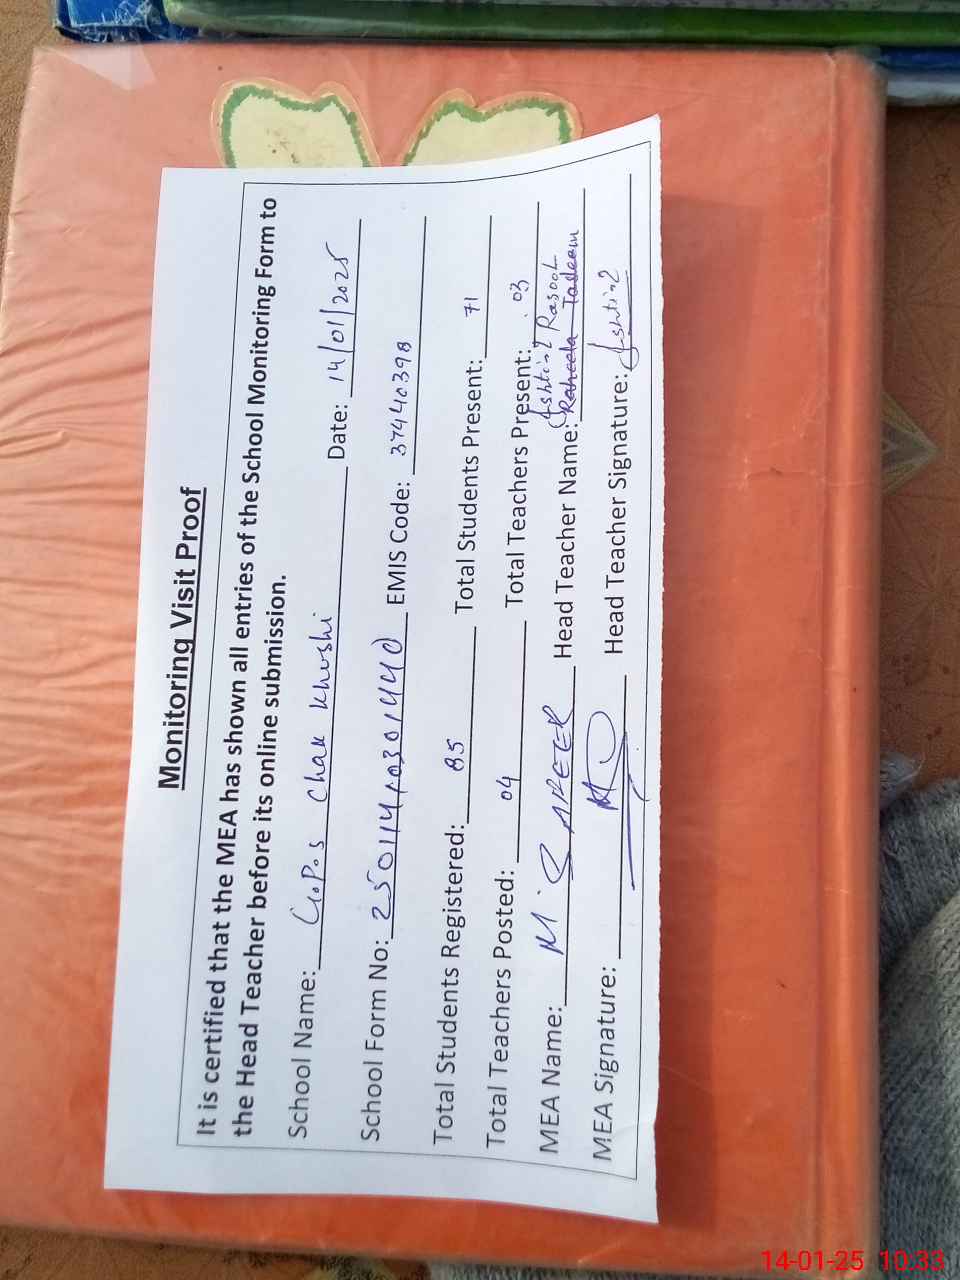 Monitoring Visit Proof
It is certified that the MEA has shown all entries of the School Monitoring Form to
the Head Teacher before its online submission.
School Name: G.P.S Chak Khushi Date: 14/01/2025
School Form No: EMIS Code: 37440398
Total Students Registered: 85 Total Students Present: 71
Total Teachers Posted: 04 Total Teachers Present: 03
Ishtiaq Rasool
MEA Name: Head Teacher Name: Raheela Tasleem
MEA Signature: Head Teacher Signature: Ishtiaq
14-01-25 10:33